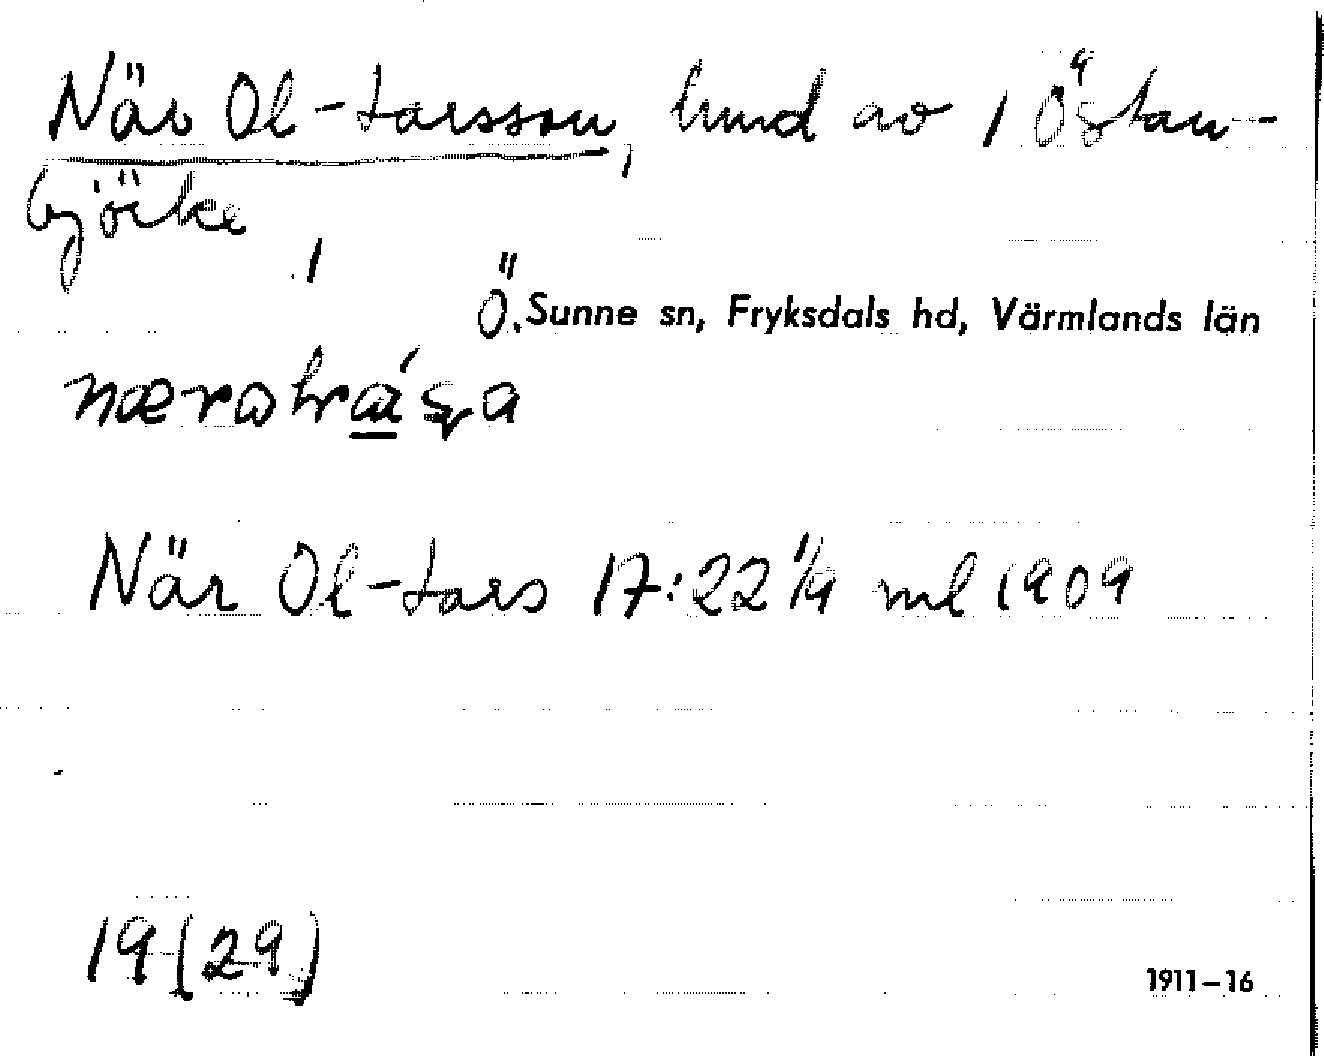 När Ol-Larsson, hmd av 1 Östan-
björke
Ö. Sunne sn, Fryksdals hd, Värmlands län
När Ol-Lars 17:22 1/9 ml 1909
19 (29)
1911-16